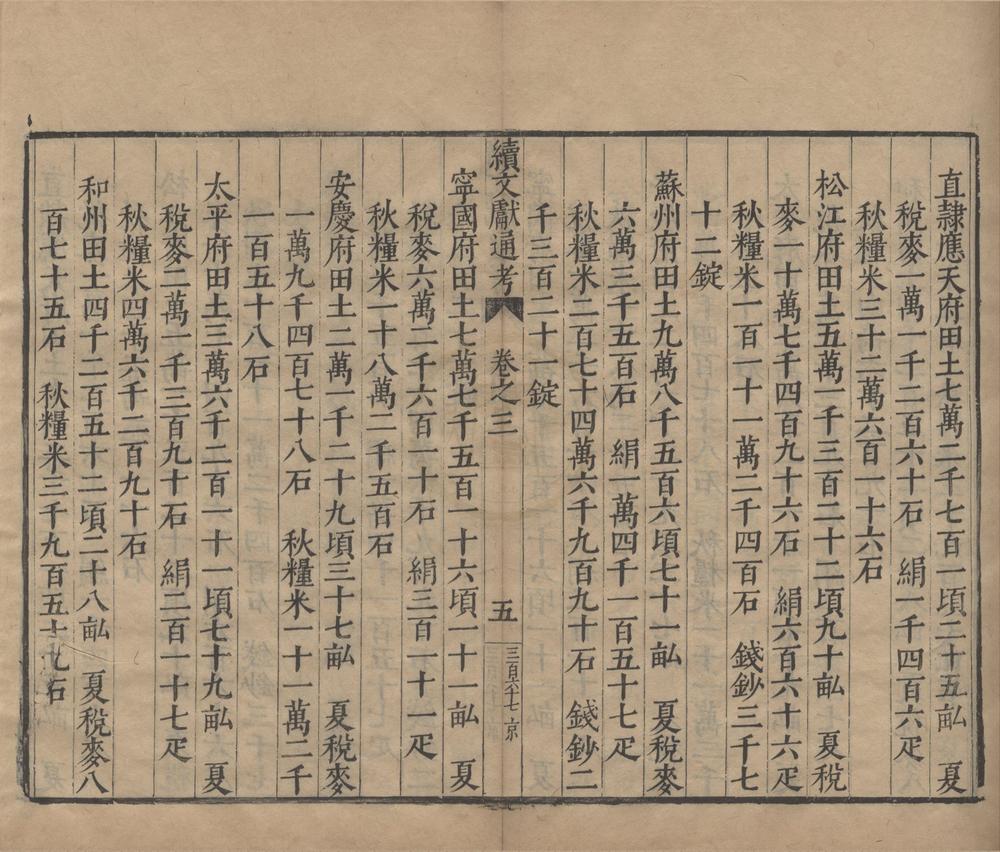 直隷應天府田土七萬二千七百一頃二十五畝　夏
稅麥一萬一千二百六十石　絹一千四百六疋
秋糧米三十二萬六百一十六石
松江府田土五萬一千三百二十二頃九十畝　夏稅
麥一十萬七千四百九十六石　絹六百六十六疋
秋糧米一百一十一萬二千四百石　錢鈔三千七
十二錠
蘇州府田土九萬八千五百六頃七十一畝　夏稅麥
六萬三千五百石　絹一萬四千一百五十七疋
秋糧米二百七十四萬六千九百九十石　錢鈔二
千三百二十一錠
續文獻通考　卷之三　五　三百六十七　京
寧國府田土七萬七千五百一十六頃一十一畝　夏
稅麥六萬二千六百一十石　絹三百一十一疋
秋糧米一十八萬二千五百石
安慶府田土二萬一千二十九頃三十七畝　夏稅麥
一萬九千四百七十八石　秋糧米一十一萬二千
一百五十八石
太平府田土三萬六千二百一十一頃七十九畝　夏
稅麥二萬一千三百九十石　絹二百一十七疋
秋糧米四萬六千二百九十石
和州田土四千二百五十二頃二十八畝　夏稅麥八
百七十五石　秋糧米三千九百五十九石